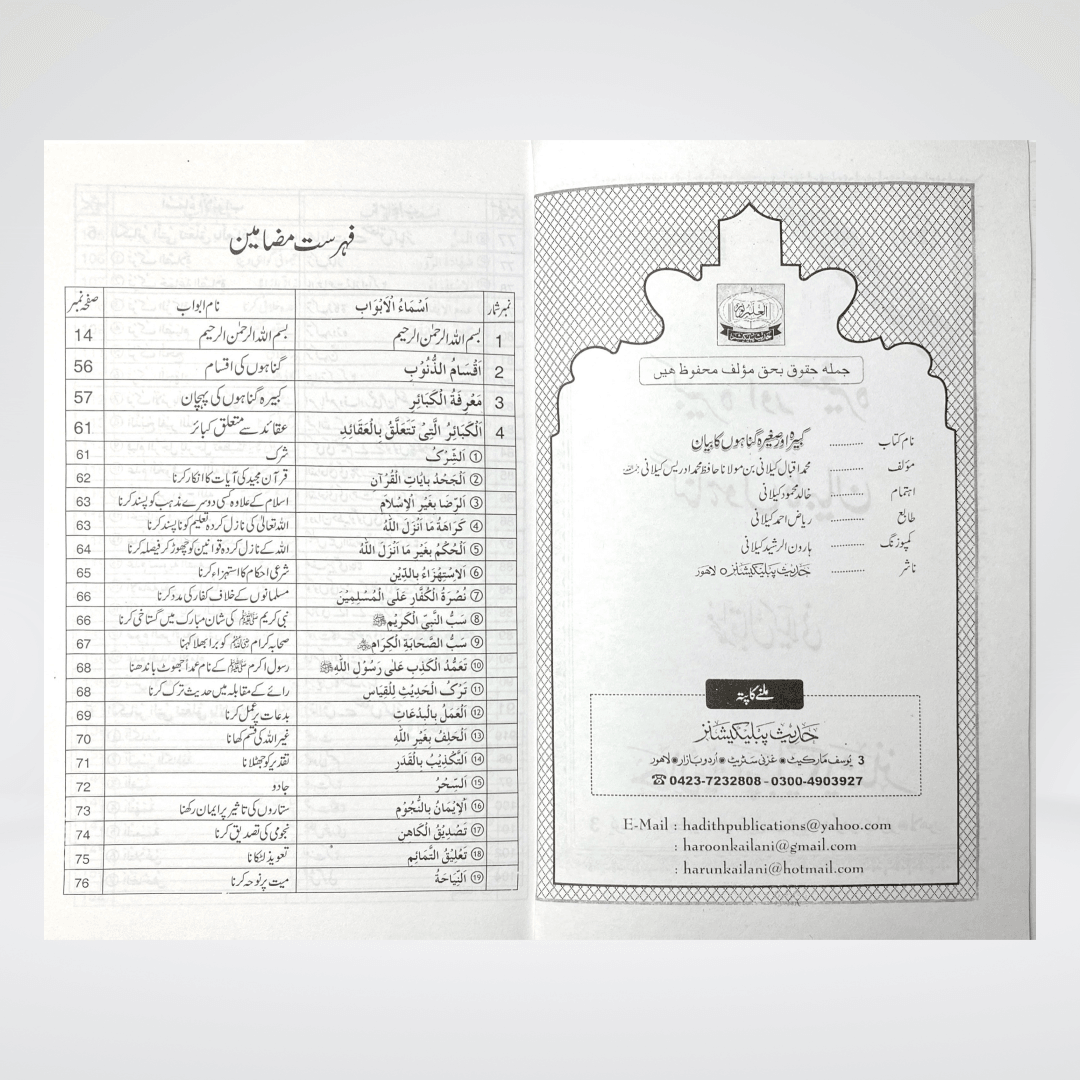 جملہ حقوق بحق مؤلف محفوظ ھیں
نام کتاب .......... کبیرہ اور صغیرہ گناہوں کا بیان
مؤلف .......... محمد اقبال کیلانی بن مولانا حافظ محمد ادریس کیلانی
اہتمام .......... خالد محمود کیلانی
طابع .......... ریاض احمد کیلانی
کمپوزنگ .......... ہارون الرشید کیلانی
ناشر .......... حدیث پبلیکیشنز ○ لاھور
ملنے کا پتہ
حدیث پبلیکیشنز
3 یوسف مارکیٹ • غزنی سٹریٹ • اُردو بازار • لاھور
☎ 0423-7232808 - 0300-4903927
E-Mail : hadithpublications@yahoo.com
: haroonkailani@gmail.com
: harunkailani@hotmail.com
فہرست مضامین
نمبر شمار اَسْمَاءُ الْاَبْوَابِ نام ابواب صفحہ نمبر
1 بسم اللہ الرحمٰن الرحیم بسم اللہ الرحمٰن الرحیم 14
2 اَقْسَامُ الذُّنُوْبِ گناہوں کی اقسام 56
3 مَعْرِفَةُ الْكَبَائِرِ کبیرہ گناہوں کی پہچان 57
4 اَلْكَبَائِرُ الَّتِيْ تَتَعَلَّقُ بِالْعَقَائِدِ عقائد سے متعلق کبائر 61
① اَلشِّرْكُ شرک 61
② اَلْجَحْدُ بِاٰيَاتِ الْقُرْآنِ قرآن مجید کی آیات کا انکار کرنا 62
③ اَلرِّضَا بِغَيْرِ الْاِسْلَامِ اسلام کے علاوہ کسی دوسرے مذہب کو پسند کرنا 63
④ كَرَاهَةُ مَا اَنْزَلَ اللّٰهُ اللہ تعالیٰ کی نازل کردہ تعلیم کو ناپسند کرنا 63
⑤ اَلْحُكْمُ بِغَيْرِ مَا اَنْزَلَ اللّٰهُ اللہ کے نازل کردہ قوانین کو چھوڑ کر فیصلہ کرنا 64
⑥ اَلْاِسْتِهْزَاءُ بِالدِّيْنِ شرعی احکام کا استہزاء کرنا 65
⑦ نُصْرَةُ الْكُفَّارِ عَلَى الْمُسْلِمِيْنَ مسلمانوں کے خلاف کفار کی مدد کرنا 66
⑧ سَبُّ النَّبِيِّ الْكَرِيْمِ ﷺ نبی کریم ﷺ کی شان مبارک میں گستاخی کرنا 66
⑨ سَبُّ الصَّحَابَةِ الْكِرَامِ صحابہ کرام کو برا بھلا کہنا 67
⑩ تَعَمُّدُ الْكَذِبِ عَلٰى رَسُوْلِ اللّٰهِ ﷺ رسول اکرم ﷺ کے نام عمداً جھوٹ باندھنا 68
⑪ تَرْكُ الْحَدِيْثِ لِلْقِيَاسِ رائے کے مقابلہ میں حدیث ترک کرنا 68
⑫ اَلْعَمَلُ بِالْبِدْعَاتِ بدعات پر عمل کرنا 69
⑬ اَلْحَلِفُ بِغَيْرِ اللّٰهِ غیر اللہ کی قسم کھانا 70
⑭ اَلتَّكْذِيْبُ بِالْقَدَرِ تقدیر کو جھٹلانا 71
⑮ اَلسِّحْرُ جادو 72
⑯ اَلْاِيْمَانُ بِالنُّجُوْمِ ستاروں کی تاثیر پر ایمان رکھنا 73
⑰ تَصْدِيْقُ الْكَاهِنِ نجومی کی تصدیق کرنا 74
⑱ تَعْلِيْقُ التَّمَائِمِ تعویذ لٹکانا 75
⑲ اَلنِّيَاحَةُ میت پر نوحہ کرنا 76